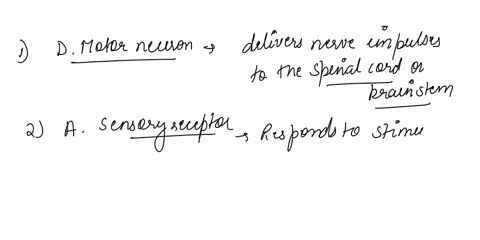 1) D. Motor neuron → delivers nerve impulses
to the spinal cord or
brainstem
2) A. Sensory receptor → Responds to stimu